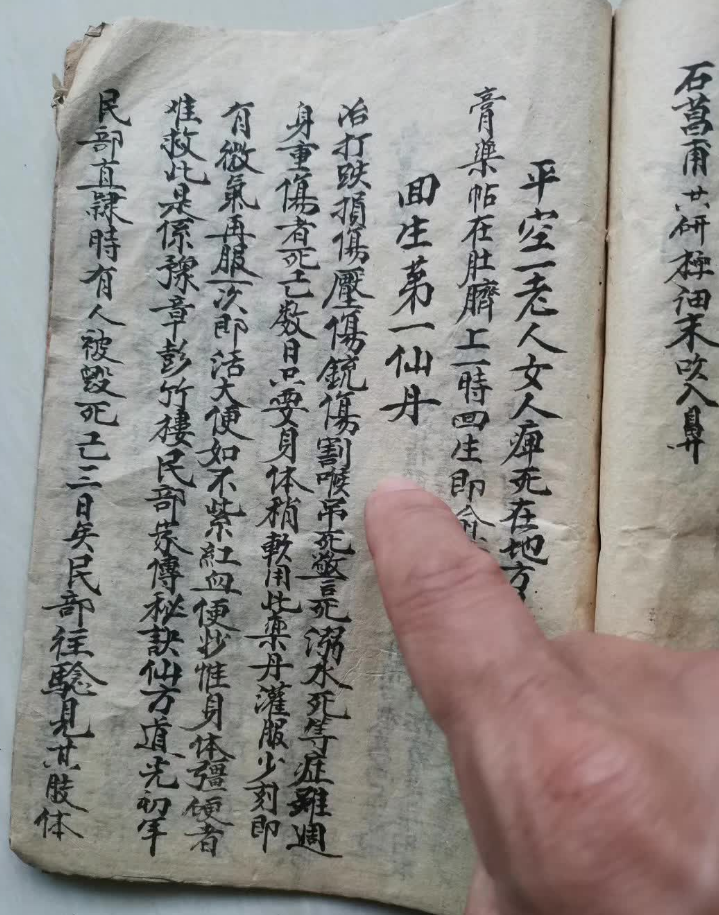 石菖甫共研極細末吹入鼻
平空一老人女人痺死在地方
膏藥帖在肚臍上一時回生即
回生第一仙丹
治打跌損傷壓傷銃傷割喉吊死驚死溺水死等症雖週
身重傷者死已数日只要身体稍軟用此藥丹灌服少刻即
有微氣再服一次即活大便如不紫紅血便抄惟身体殭硬者
难救此是係豫章彭竹樓民部家傳秘訣仙方道光初年
民部直隸時有人被毀死已三日矣民部往驗見其肢体